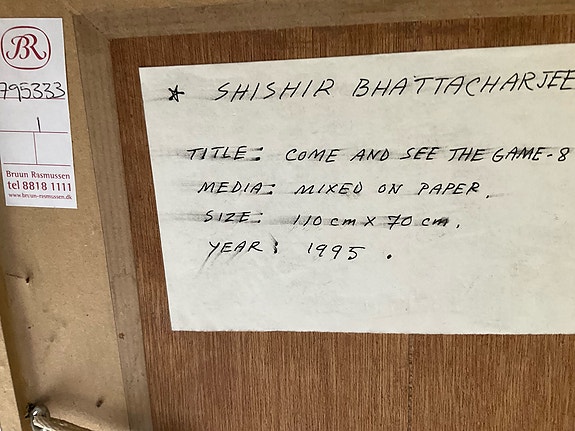 BR
795333
1
Bruun Rasmussen
tel 8818 1111
www.bruun-rasmussen.dk
* SHISHIR BHATTACHARJEE
TITLE: COME AND SEE THE GAME-8
MEDIA: MIXED ON PAPER.
SIZE: 110 cm X 70 cm.
YEAR: 1995.